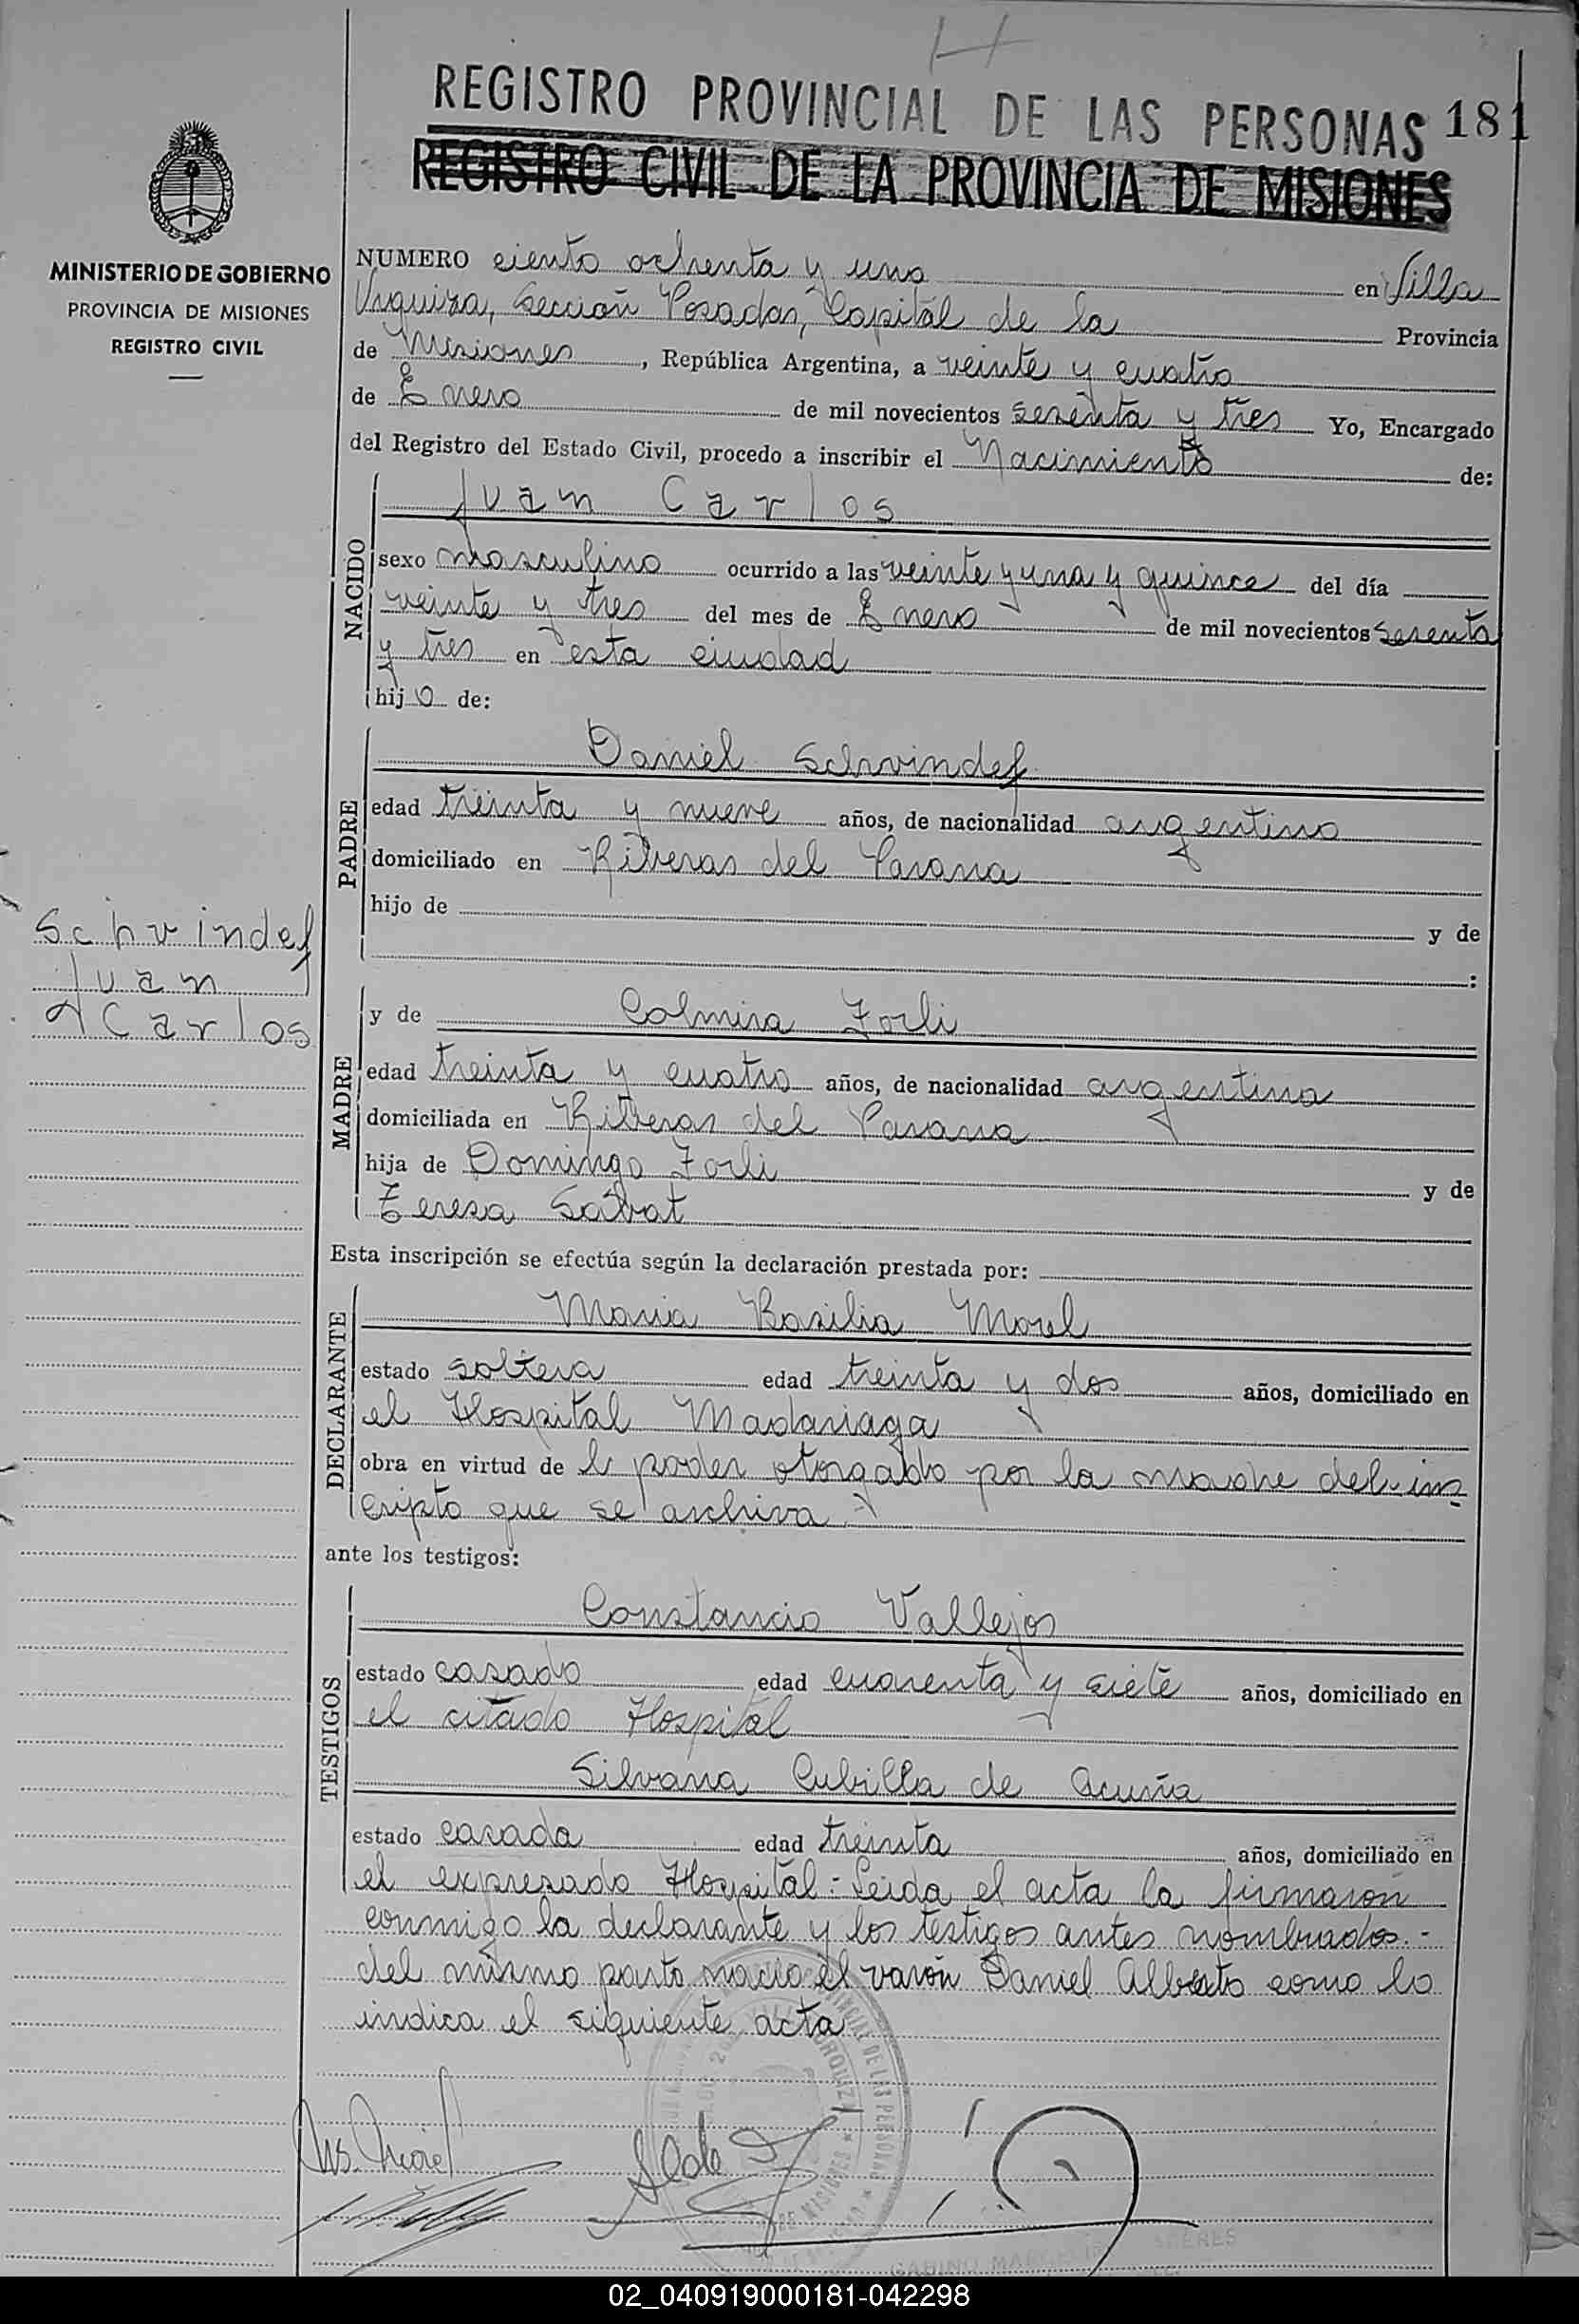 REGISTRO PROVINCIAL DE LAS PERSONAS 181
REGISTRO CIVIL DE LA PROVINCIA DE MISIONES
MINISTERIO DE GOBIERNO
PROVINCIA DE MISIONES
REGISTRO CIVIL
NUMERO ciento ochenta y uno en Villa
Urquiza, Sección Posadas, Capital de la Provincia
de Misiones, República Argentina, a veinte y cuatro
de Enero de mil novecientos sesenta y tres Yo, Encargado
del Registro del Estado Civil, procedo a inscribir el Nacimiento de:
NACIDO
Juan Carlos
sexo masculino ocurrido a las veinte y una y quince del día
veinte y tres del mes de Enero de mil novecientos sesenta
y tres en esta ciudad
hijo de:
PADRE
Daniel Schvindef
edad treinta y nueve años, de nacionalidad argentino
domiciliado en Riberas del Parana
hijo de y de
:
Schvindef
Juan
Carlos
MADRE
y de Colmira Forli
edad treinta y cuatro años, de nacionalidad argentina
domiciliada en Riberas del Parana
hija de Domingo Forli y de
Teresa Sabat
Esta inscripción se efectúa según la declaración prestada por:
DECLARANTE
Maria Basilia Morel
estado soltera edad treinta y dos años, domiciliado en
el Hospital Madariaga
obra en virtud de l poder otorgado por la madre del ins
cripto que se archiva.-
ante los testigos:
TESTIGOS
Constancio Vallejos
estado casado edad cuarenta y siete años, domiciliado en
el citado Hospital
Silvana Cubilla de Acuña
estado casada edad treinta años, domiciliado en
el expresado Hospital.- Leida el acta la firmaron
conmigo la declarante y los testigos antes nombrados.-
del mismo parto nacio el varón Daniel Alberto como lo
indica el siguiente acta
02_040919000181-042298